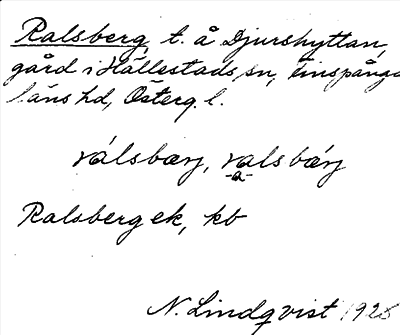 Ralsberg, t. å Djurshyttan,
gård i Hällestads sn, Finspånga
läns hd, Österg. l.
rálsbærj, ralsbǽrj
-a-
Ralsberg ek, kb
N. Lindqvist 1928